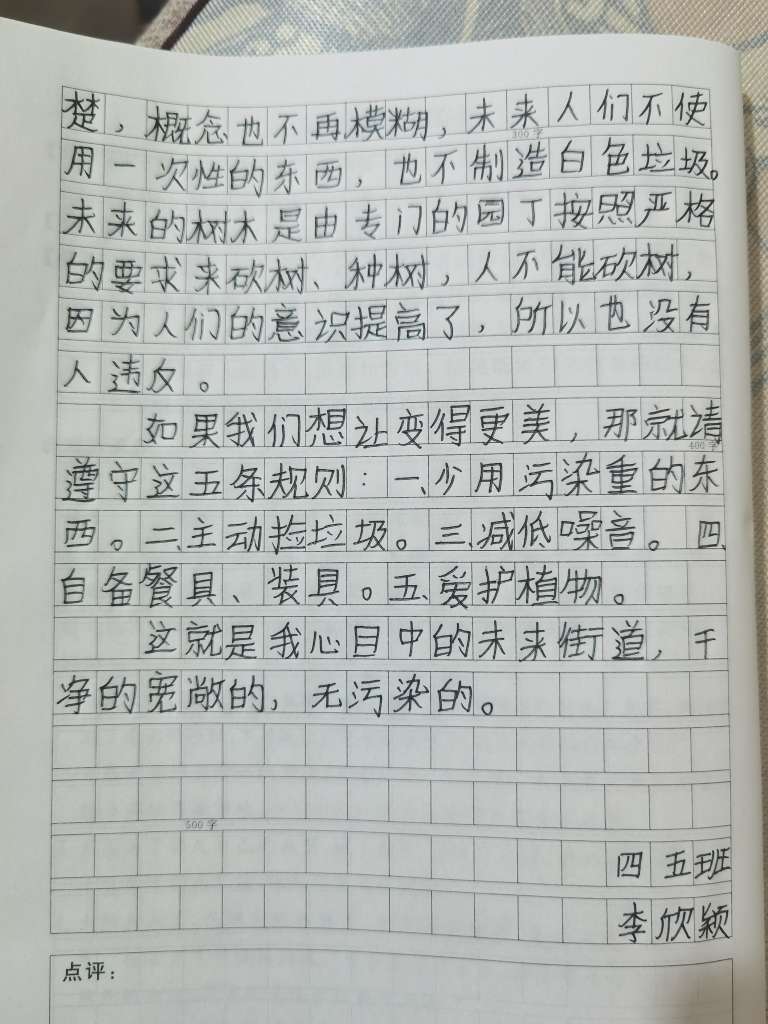 楚，概念也不再模糊，未来人们不使
300字
用一次性的东西，也不制造白色垃圾。
未来的树木是由专门的园丁按照严格
的要求来砍树、种树，人不能砍树，
因为人们的意识提高了，所以也没有
人违反。
如果我们想让变得更美，那就请
400字
遵守这五条规则：一、少用污染重的东
西。二、主动捡垃圾。三、减低噪音。四、
自备餐具、装具。五、爱护植物。
这就是我心目中的未来街道，干
净的宽敞的，无污染的。
500字
四五班
李欣颖
点评：